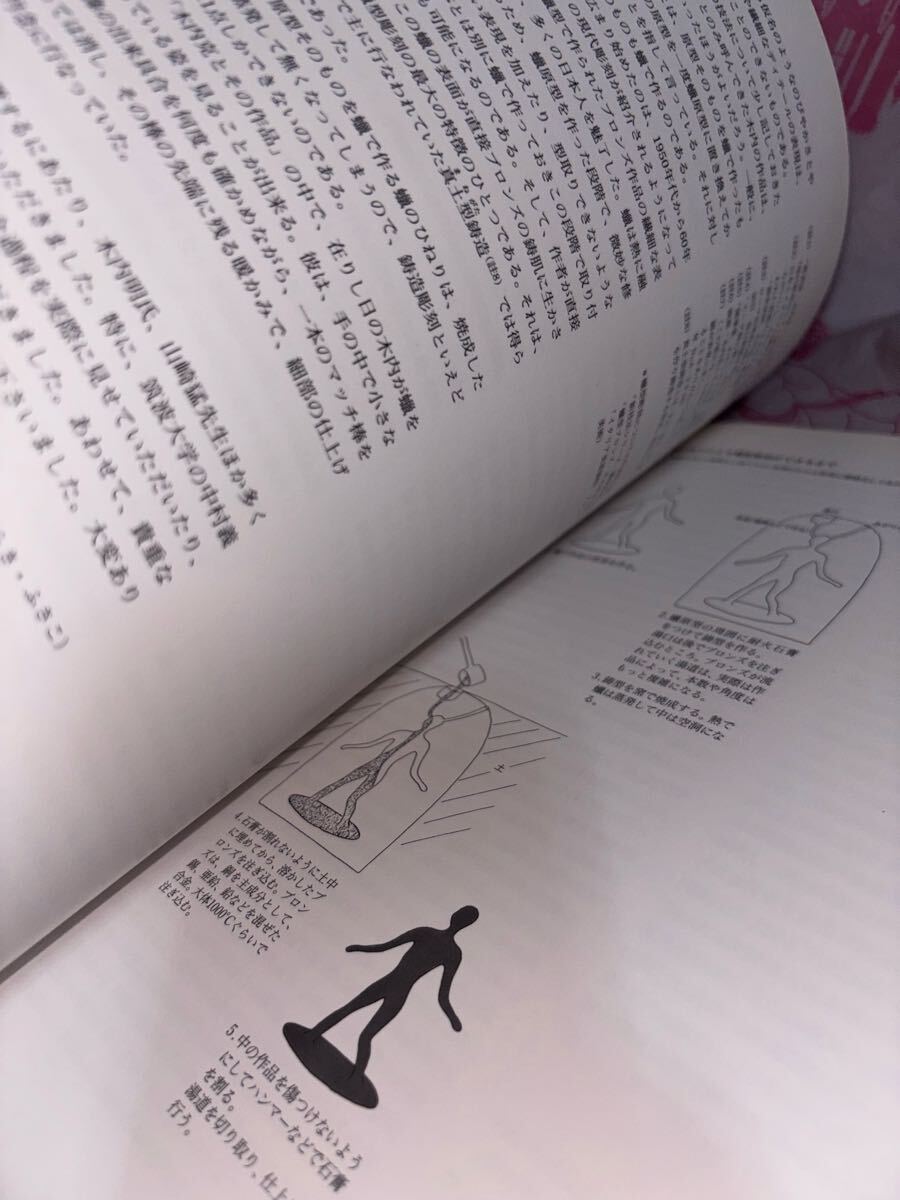 や繊細なディテールの表現は、
ことのできないものである。
の技法について少し記しておきた
とのみ呼んできた木内の作品は、
ったほうがよいだろう。一般に、
は、原型そのものを蝋で作ったも
の原型を一度蝋原型に置き換えてか
とを指して言っている。それに対し
のものも蝋で作るのである。
広まり始めたのは、1950年代から60年
の現代彫刻が紹介されるようになって
蝋型で作られたブロンズ作品の繊細な表
、多くの日本人を魅了した。蝋は熱に融
ため、蝋原型を作った段階で、微妙な修
い表現を加えたり、型取りできないような
とは別に蝋で作っておきこの段階で取り付
も可能になるのである。そして、作者が直接
この蝋の表面が直接ブロンズの鋳肌に生かさ
型彫刻の最大の特徴のひとつである。それは、
で主に行なわれていた真土型鋳造(註8)では得ら
であった。
原型そのものを蝋で作る蝋のひねりは、焼成した
蒸発して無くなってしまうので、鋳造彫刻といえど
1点しかできないのである。
「木内克とその作品」の中で、在りし日の木内が蝋を
ている姿を見ることが出来る。彼は、手の中で小さな
の出来具合を何度も確かめながら、一本のマッチ棒を
ては消し、その棒の先端に残る暖かみで、細部の仕上げ
に行なっていた。
するにあたり、木内明氏、山崎猛先生ほか多く
いただきました。特に、筑波大学の中村義
を実際に見せていただいたり、
だきました。あわせて、貴重な
下さいました。大変あり
き・ふさこ)
2.蝋原型の周囲に耐火石膏
をつけて鋳型を作る。
湯口は後でブロンズを注ぎ
込むところ。ブロンズが流
れていく湯道は、実際は作
品によって、本数や角度は
もっと複雑になる。
3.鋳型を窯で焼成する。熱で
蝋は蒸発して中は空洞にな
る。
土
4.石膏が割れないように土中
に埋めてから、溶かしたブ
ロンズを注ぎ込む。ブロン
ズは、銅を主成分として、
錫、亜鉛、鉛などを混ぜた
合金。大体1000℃ぐらいで
注ぎ込む。
5.中の作品を傷つけないよう
にしてハンマーなどで石膏
を割る。
湯道を切り取り、仕上
行う。